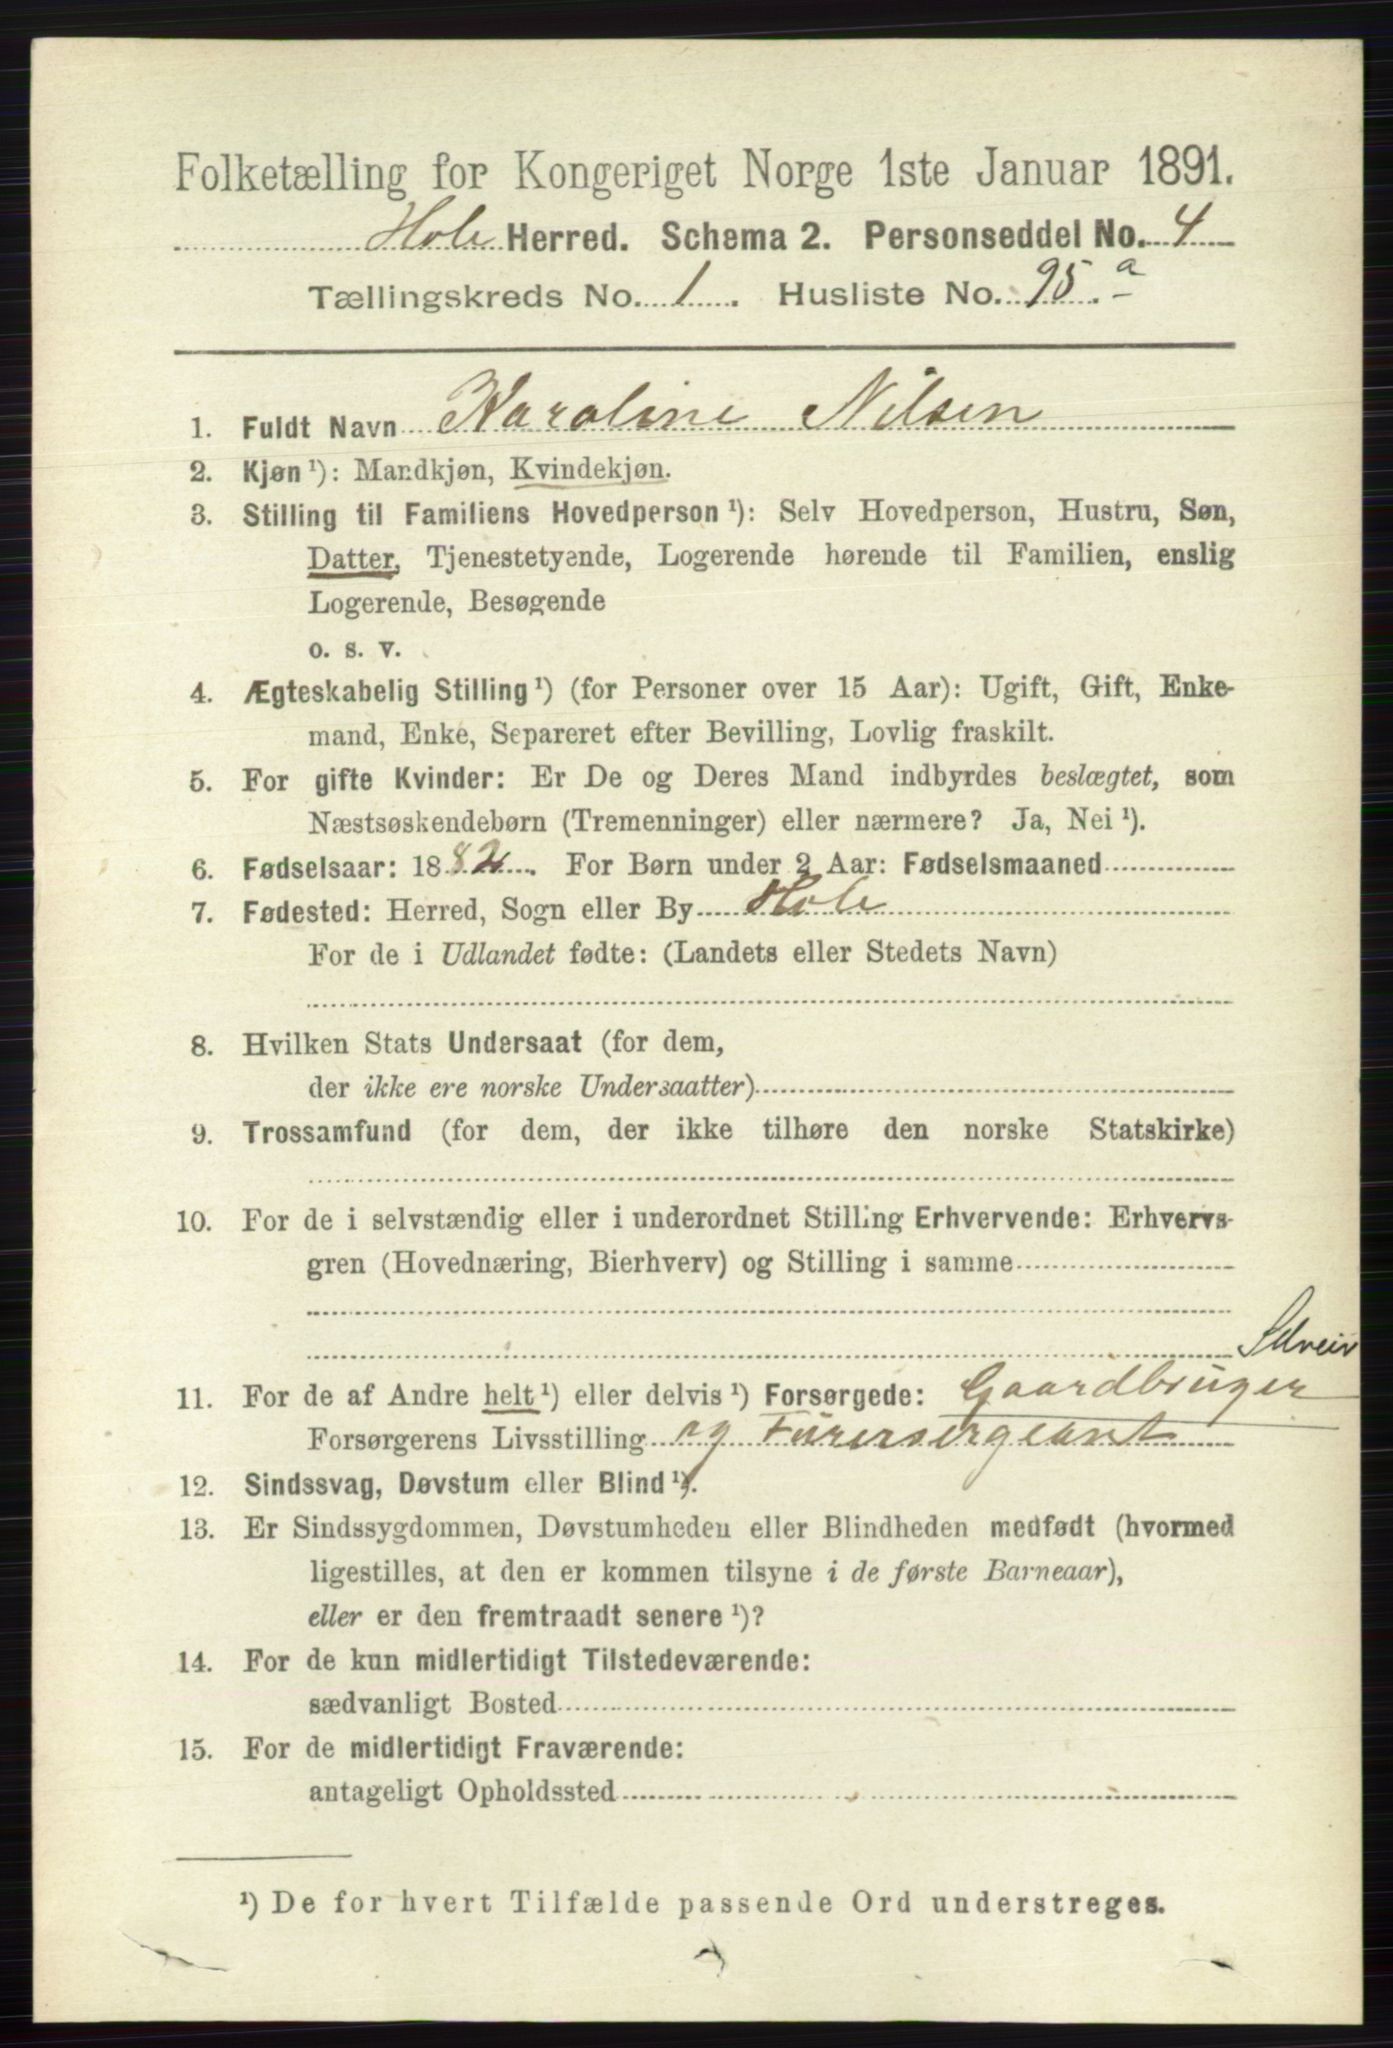 Folketælling for Kongeriget Norge 1ste Januar 1891.
Hole Herred. Schema 2. Personseddel No. 4
Tællingskreds No. 1. Husliste No. 95.a
1. Fuldt Navn Karoline Nilsen
2. Kjøn¹): Mandkjøn, Kvindekjøn.
3. Stilling til Familiens Hovedperson¹): Selv Hovedperson, Hustru, Søn,
Datter, Tjenestetyende, Logerende hørende til Familien, enslig
Logerende, Besøgende
o. s. v.
4. Ægteskabelig Stilling¹) (for Personer over 15 Aar): Ugift, Gift, Enke-
mand, Enke, Separeret efter Bevilling, Lovlig fraskilt.
5. For gifte Kvinder: Er De og Deres Mand indbyrdes beslægtet, som
Næstsøskendebørn (Tremenninger) eller nærmere? Ja, Nei¹).
6. Fødselsaar: 1882. For Børn under 2 Aar: Fødselsmaaned
7. Fødested: Herred, Sogn eller By Hole
For de i Udlandet fødte: (Landets eller Stedets Navn)
8. Hvilken Stats Undersaat (for dem,
der ikke ere norske Undersaatter)
9. Trossamfund (for dem, der ikke tilhøre den norske Statskirke)
10. For de i selvstændig eller i underordnet Stilling Erhvervende: Erhvervs-
gren (Hovednæring, Bierhverv) og Stilling i samme
Selveir
11. For de af Andre helt¹) eller delvis¹) Forsørgede: Gaardbruger
Forsørgerens Livsstilling og Furersergeant
12. Sindssvag, Døvstum eller Blind¹).
13. Er Sindssygdommen, Døvstumheden eller Blindheden medfødt (hvormed
ligestilles, at den er kommen tilsyne i de første Barneaar),
eller er den fremtraadt senere¹)?
14. For de kun midlertidigt Tilstedeværende:
sædvanligt Bosted
15. For de midlertidigt Fraværende:
antageligt Opholdssted
¹) De for hvert Tilfælde passende Ord understreges.